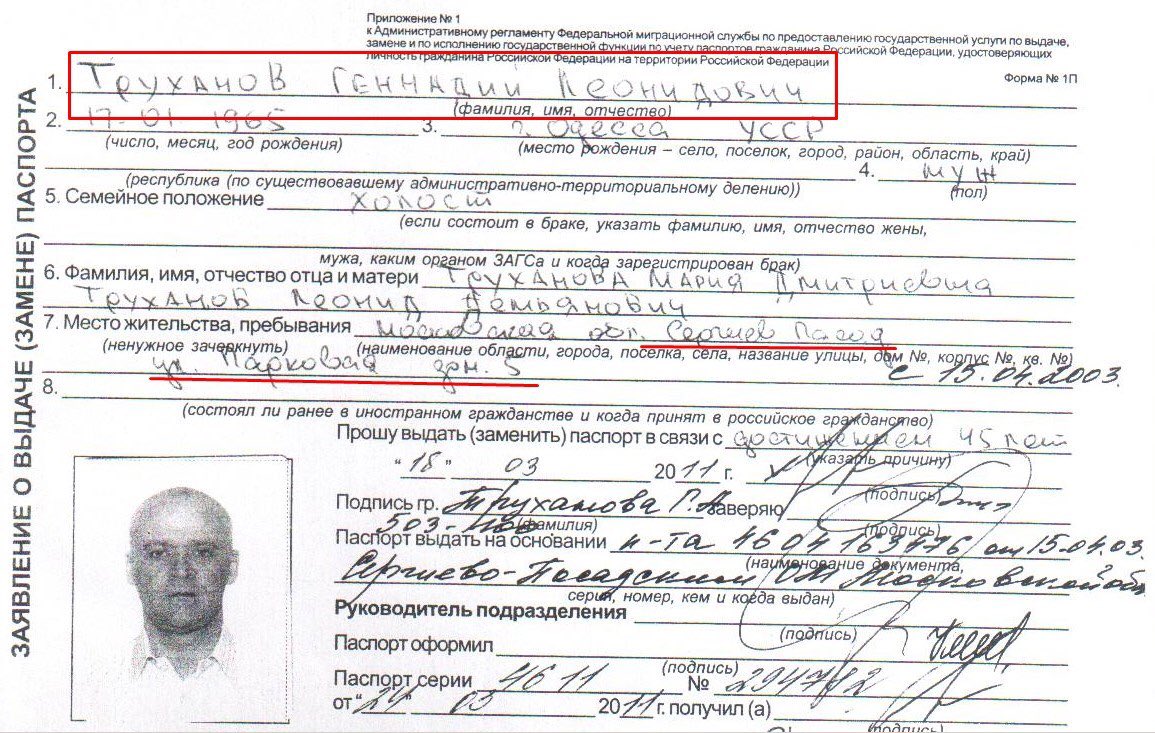 Приложение № 1
к Административному регламенту Федеральной миграционной службы по предоставлению государственной услуги по выдаче,
замене и по исполнению государственной функции по учету паспортов гражданина Российской Федерации, удостоверяющих
личность гражданина Российской Федерации на территории Российской Федерации
Форма № 1П
ЗАЯВЛЕНИЕ О ВЫДАЧЕ (ЗАМЕНЕ) ПАСПОРТА
1. Труханов Геннадий Леонидович
(фамилия, имя, отчество)
2. 17-01 1965 3. г. Одесса УССР
(число, месяц, год рождения) (место рождения – село, поселок, город, район, область, край)
4. муж
(республика (по существовавшему административно-территориальному делению)) (пол)
5. Семейное положение холост
(если состоит в браке, указать фамилию, имя, отчество жены,
мужа, каким органом ЗАГСа и когда зарегистрирован брак)
6. Фамилия, имя, отчество отца и матери Труханова Мария Дмитриевна
Труханов Леонид Демьянович
7. Место жительства, пребывания Московская обл. Сергиев Посад
(ненужное зачеркнуть) (наименование области, города, поселка, села, название улицы, дом №, корпус №, кв. №)
ул. Парковая дом. 5 с 15.04.2003.
8.
(состоял ли ранее в иностранном гражданстве и когда принят в российское гражданство)
Прошу выдать (заменить) паспорт в связи с достижением 45 лет
(указать причину)
"18" 03 2011 г.
(подпись)
Подпись гр. Труханова Г.Л. заверяю
(фамилия) (подпись)
503-
Паспорт выдать на основании п-та 4604 163476 от 15.04.03.
(наименование документа,
Сергиево-Посадским ОМ Московской обл
серия, номер, кем и когда выдан)
Руководитель подразделения
(подпись)
Паспорт оформил
(подпись)
Паспорт серии 4611 № 294782
от "24" 03 2011 г. получил (а)
(подпись)